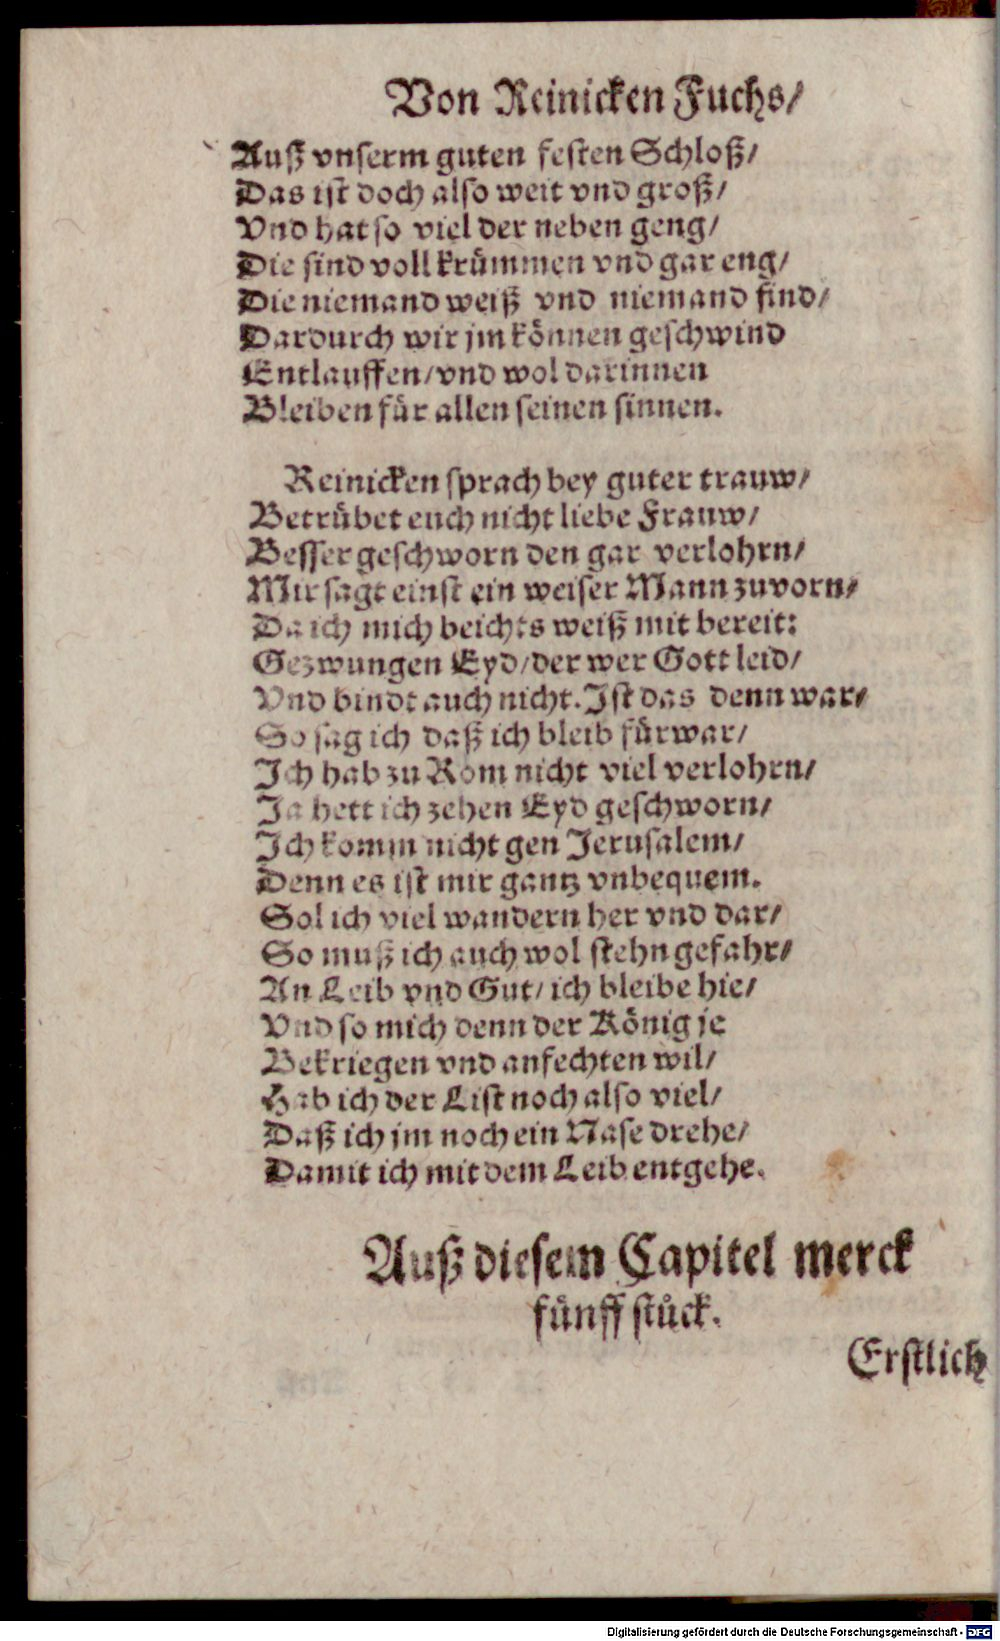 Von Reinicken Fuchs/
Auß vnserm guten festen Schloß/
Das ist doch also weit vnd groß/
Vnd hat so viel der neben geng/
Die sind voll krümmen vnd gar eng/
Die niemand weiß vnd niemand find/
Dardurch wir jm können geschwind
Entlauffen/vnd wol darinnen
Bleiben für allen seinen sinnen.
Reinicken sprach bey guter trauw/
Betrübet euch nicht liebe Frauw/
Besser geschworn den gar verlohrn/
Mir sagt einst ein weiser Mann zuvorn/
Da ich mich beichts weiß mit bereit:
Gezwungen Eyd/der wer Gott leid/
Vnd bindt auch nicht. Ist das denn war/
So sag ich daß ich bleib fürwar/
Ich hab zu Rom nicht viel verlohrn/
Ja hett ich zehen Eyd geschworn/
Ich komm nicht gen Jerusalem/
Denn es ist mir gantz vnbequem.
Sol ich viel wandern her vnd dar/
So muß ich auch wol stehn gefahr/
An Leib vnd Gut/ ich bleibe hie/
Vnd so mich denn der König je
Bekriegen vnd anfechten wil/
Hab ich der List noch also viel/
Daß ich jm noch ein Nase drehe/
Damit ich mit dem Leib entgehe.
Auß diesem Capitel merck
fünff stück.
Erstlich
Digitalisierung gefördert durch die Deutsche Forschungsgemeinschaft - DFG